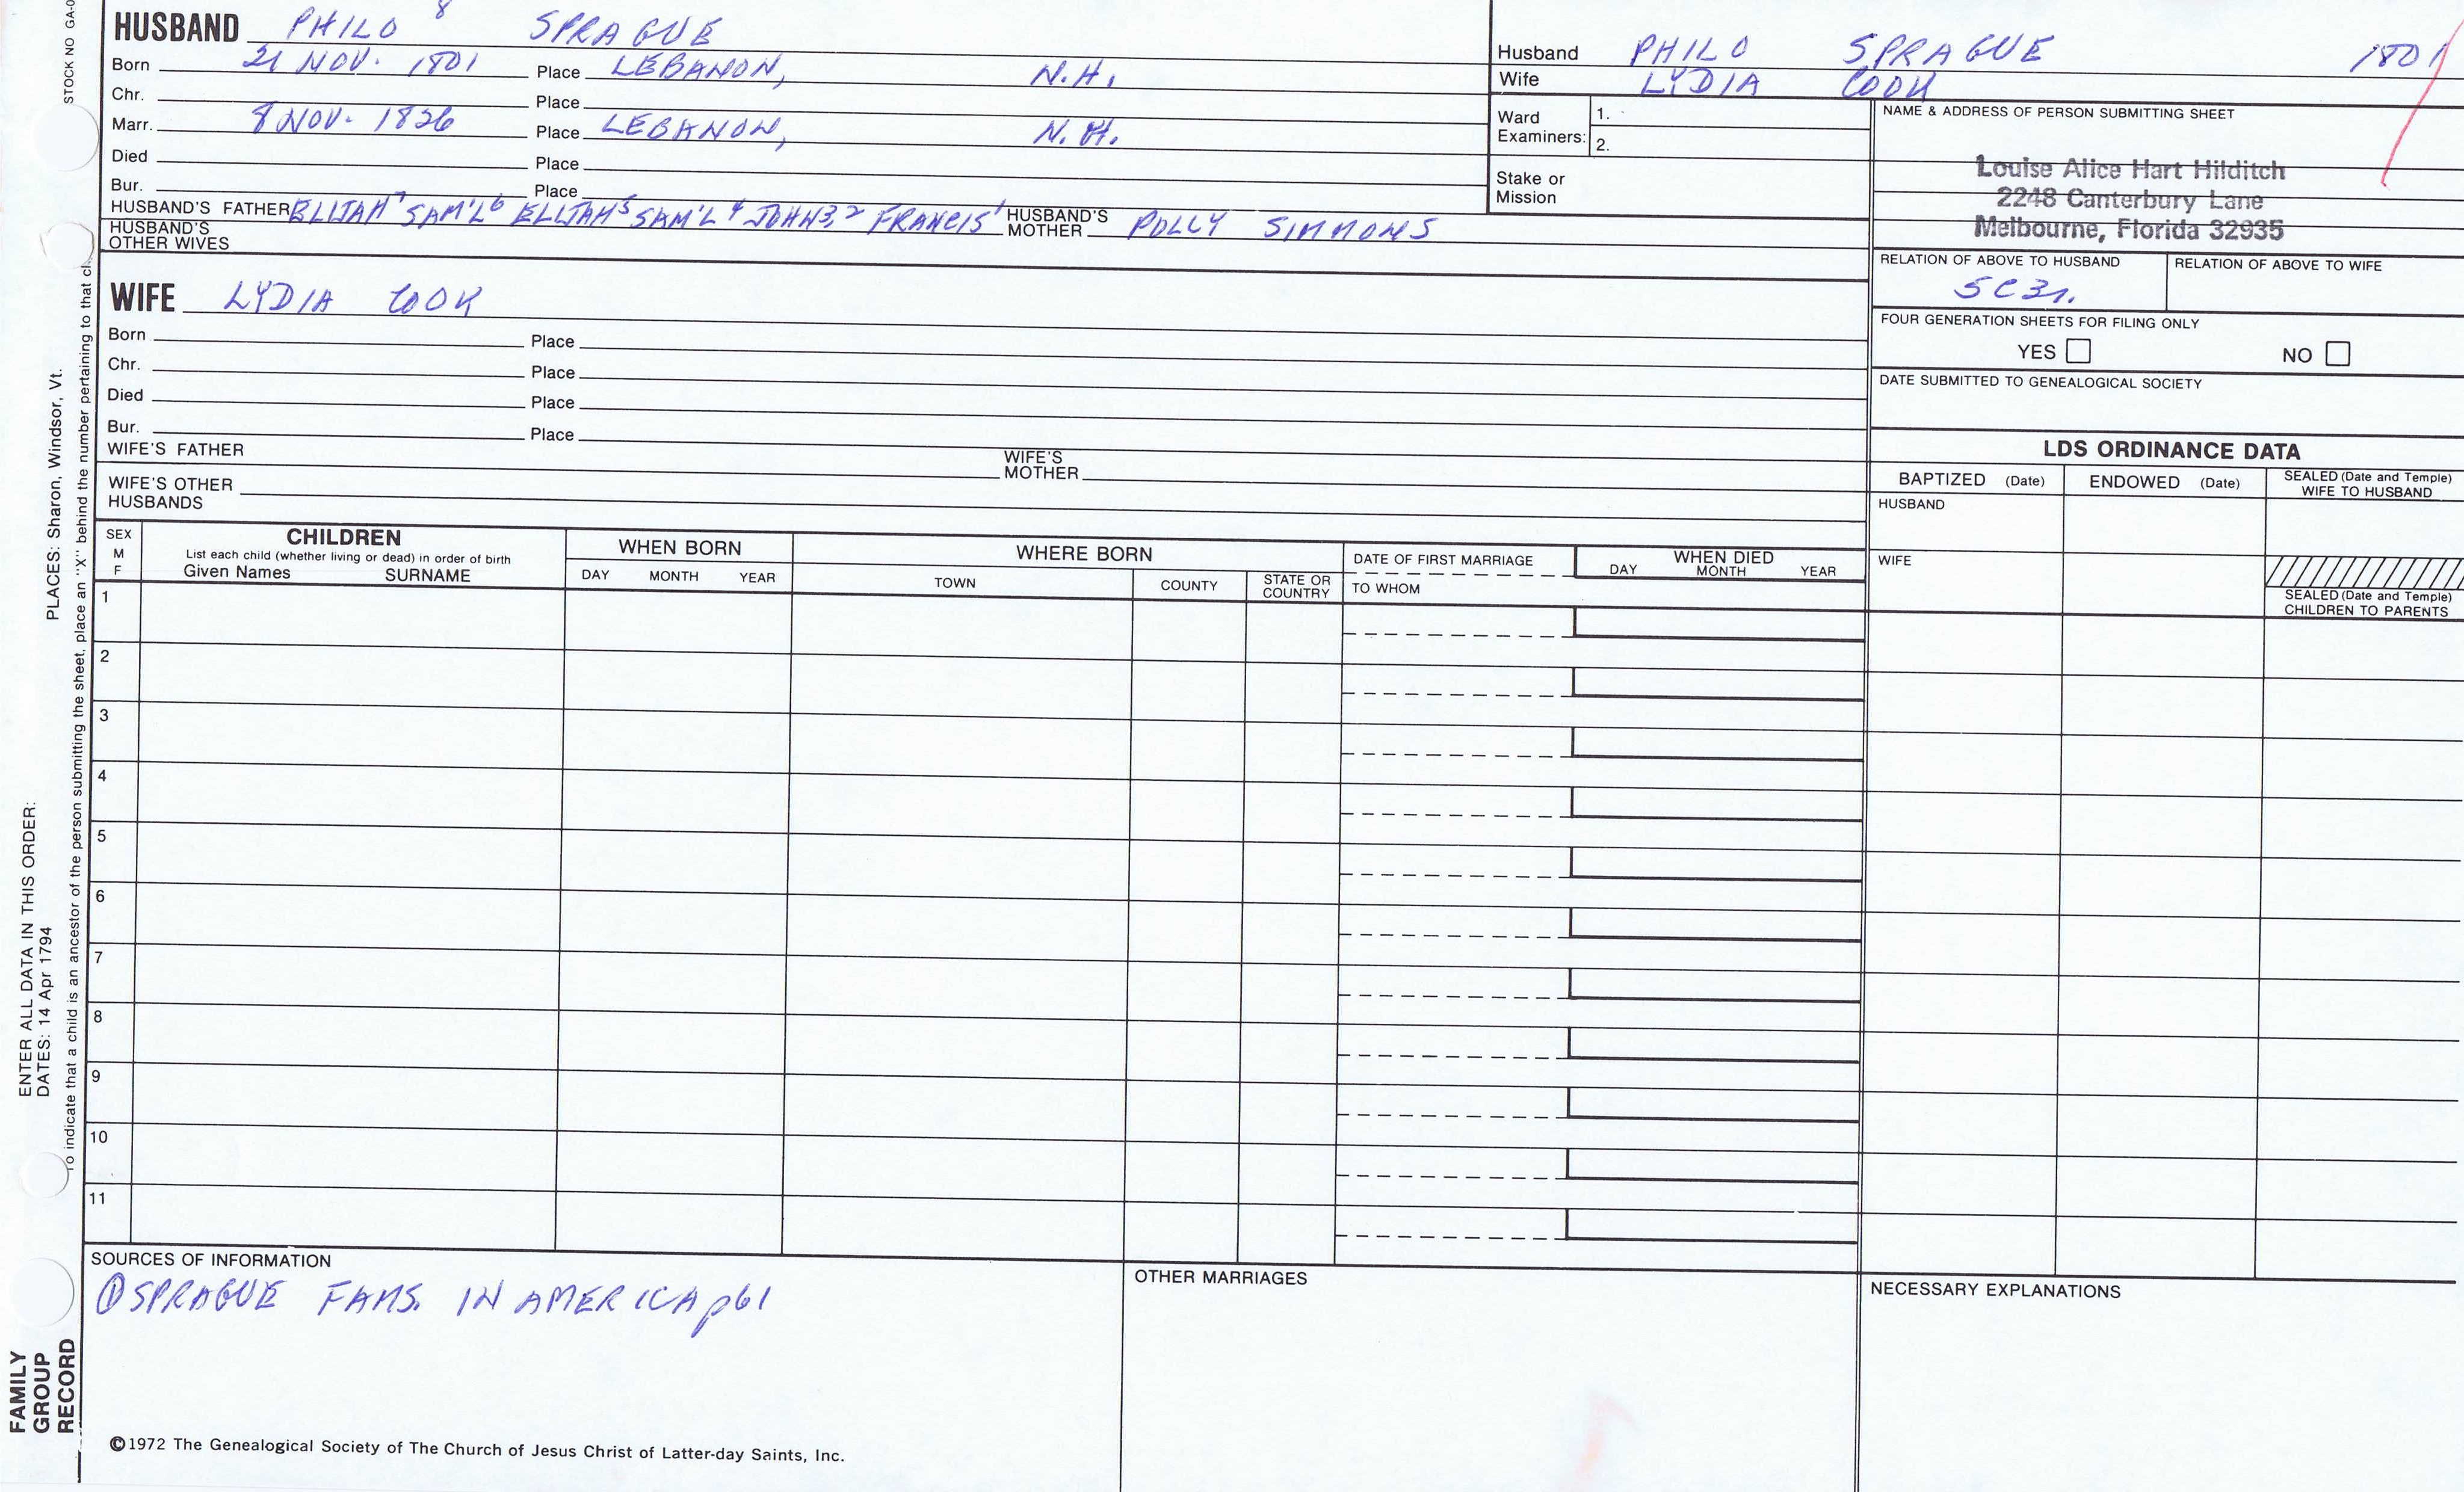 STOCK NO GA-0
HUSBAND PHILO 8 SPRAGUE
Born 21 NOV. 1801 Place LEBANON, N.H.
Chr. Place
Marr. 8 NOV. 1826 Place LEBANON, N.H.
Died Place
Bur. Place
HUSBAND'S FATHER ELIJAH7 SAM'L6 ELIJAH5 SAM'L4 JOHN3,2 FRANCIS1 HUSBAND'S MOTHER POLLY SIMMONS
HUSBAND'S OTHER WIVES
WIFE LYDIA COOK
Born Place
Chr. Place
Died Place
Bur. Place
WIFE'S FATHER WIFE'S MOTHER
WIFE'S OTHER HUSBANDS
Husband PHILO SPRAGUE 1801
Wife LYDIA COOK
Ward Examiners: 1.
2.
Stake or Mission
NAME & ADDRESS OF PERSON SUBMITTING SHEET
Louise Alice Hart Hilditch
2248 Canterbury Lane
Melbourne, Florida 32935
RELATION OF ABOVE TO HUSBAND RELATION OF ABOVE TO WIFE
5C3r.
FOUR GENERATION SHEETS FOR FILING ONLY
YES NO
DATE SUBMITTED TO GENEALOGICAL SOCIETY
LDS ORDINANCE DATA
BAPTIZED (Date) ENDOWED (Date) SEALED (Date and Temple) WIFE TO HUSBAND
HUSBAND
WIFE
SEALED (Date and Temple) CHILDREN TO PARENTS
SEX M F
CHILDREN
List each child (whether living or dead) in order of birth
Given Names SURNAME
WHEN BORN
DAY MONTH YEAR
WHERE BORN
TOWN COUNTY STATE OR COUNTRY
DATE OF FIRST MARRIAGE
TO WHOM
WHEN DIED
DAY MONTH YEAR
1
2
3
4
5
6
7
8
9
10
11
SOURCES OF INFORMATION
① SPRAGUE FAMS. IN AMERICA p61
OTHER MARRIAGES
NECESSARY EXPLANATIONS
©1972 The Genealogical Society of The Church of Jesus Christ of Latter-day Saints, Inc.
FAMILY GROUP RECORD
ENTER ALL DATA IN THIS ORDER:
DATES: 14 Apr 1794 PLACES: Sharon, Windsor, Vt.
To indicate that a child is an ancestor of the person submitting the sheet, place an "X" behind the number pertaining to that